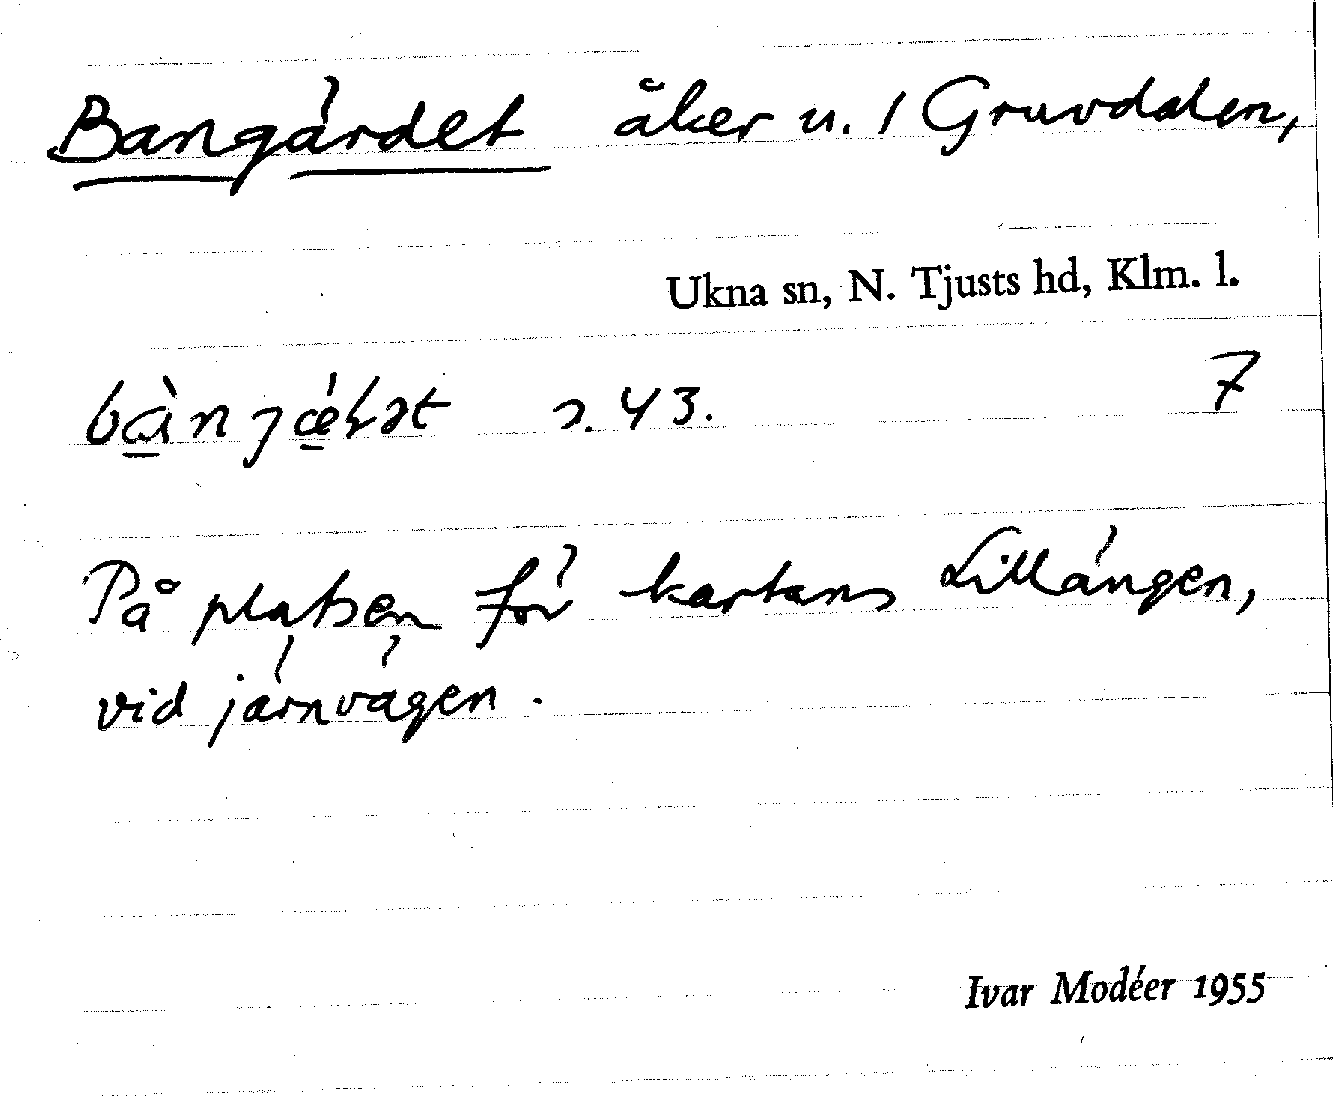 Bangärdet åker u. 1 Gruvdalen,
Ukna sn, N. Tjusts hd, Klm. l.
s. 43. 7
På platsen för kartans Lillängen,
vid järnvägen.
Ivar Modéer 1955